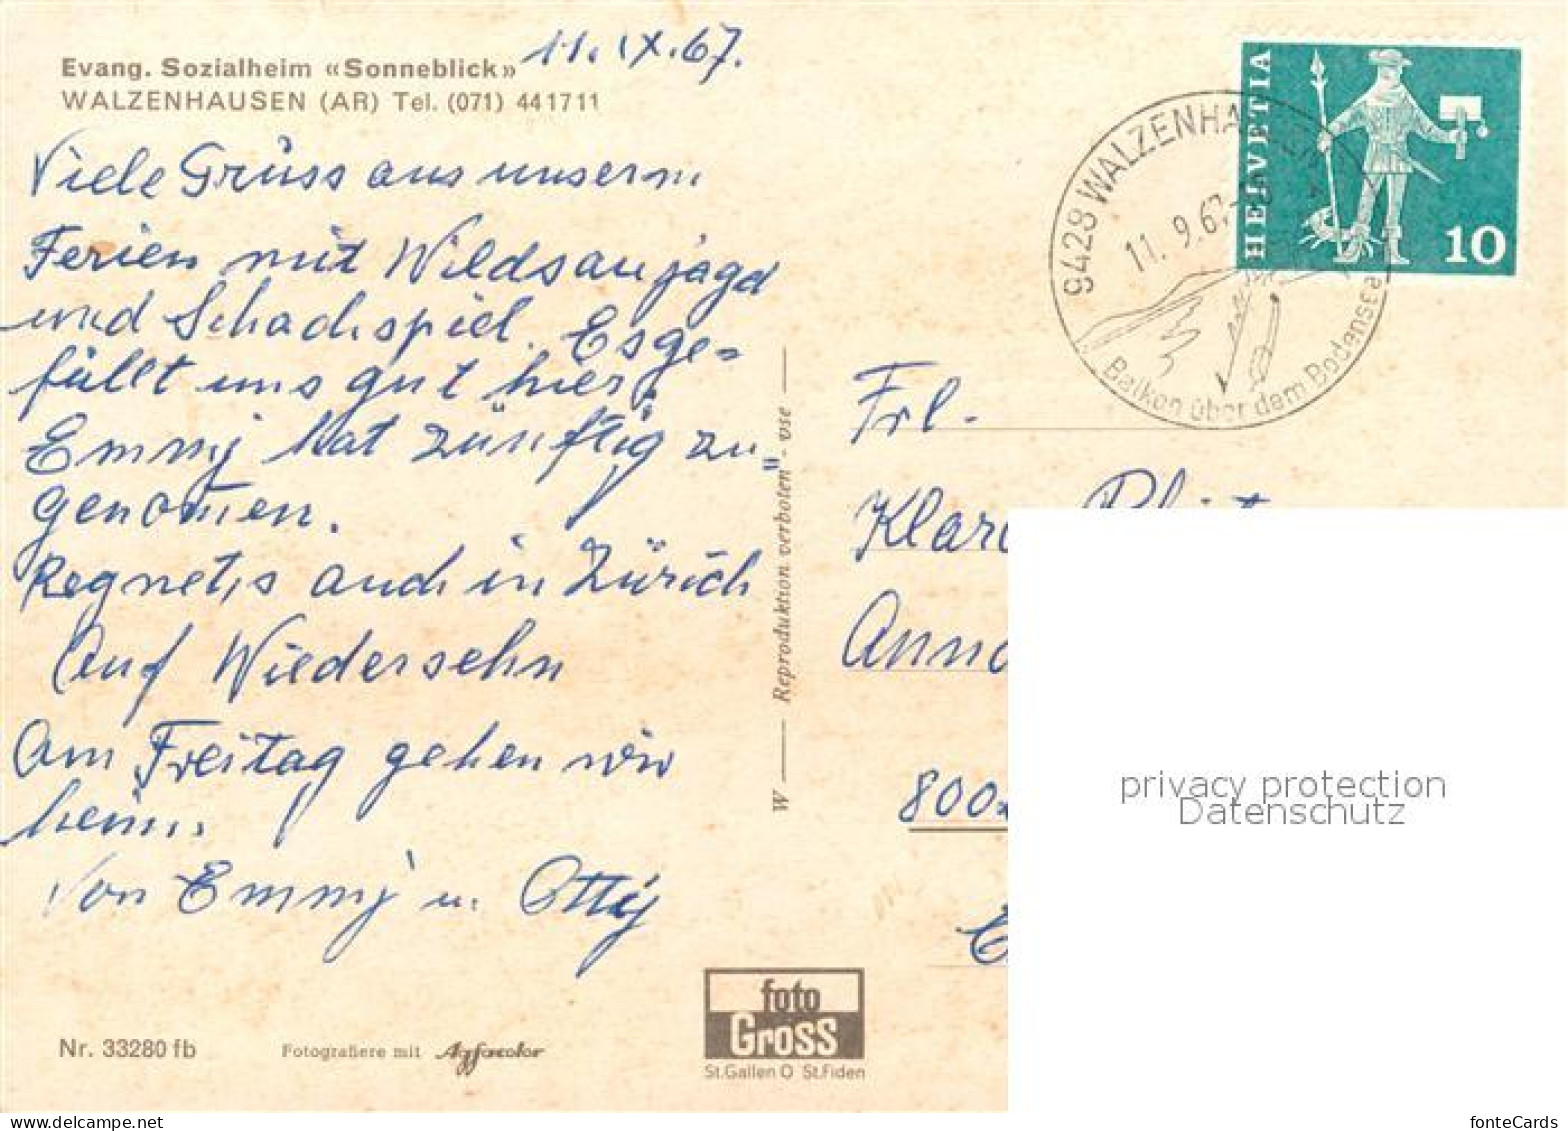 11. IX. 67.
Evang. Sozialheim «Sonneblick»
WALZENHAUSEN (AR) Tel. (071) 44 17 11
Viele Grüss aus unsern
Ferien mit Wildsaujagd
und Schachspiel. Es ge=
fällt uns gut hier,
Emmy hat zünftig zu
genomen.
Regnet,s auch in Zürich
Auf Wiedersehn
Am Freitag gehen wir
heim.
Von Emmy u. Otty
Nr. 33280 fb
Fotografiere mit Agfacolor
foto
Gross
St.Gallen O St.Fiden
W — Reproduktion verboten - vse —
HELVETIA
10
9428 WALZENHA
11. 9. 67-
Balkon über dem Bodensee
Frl.
800
privacy protection
Datenschutz
fonteCards